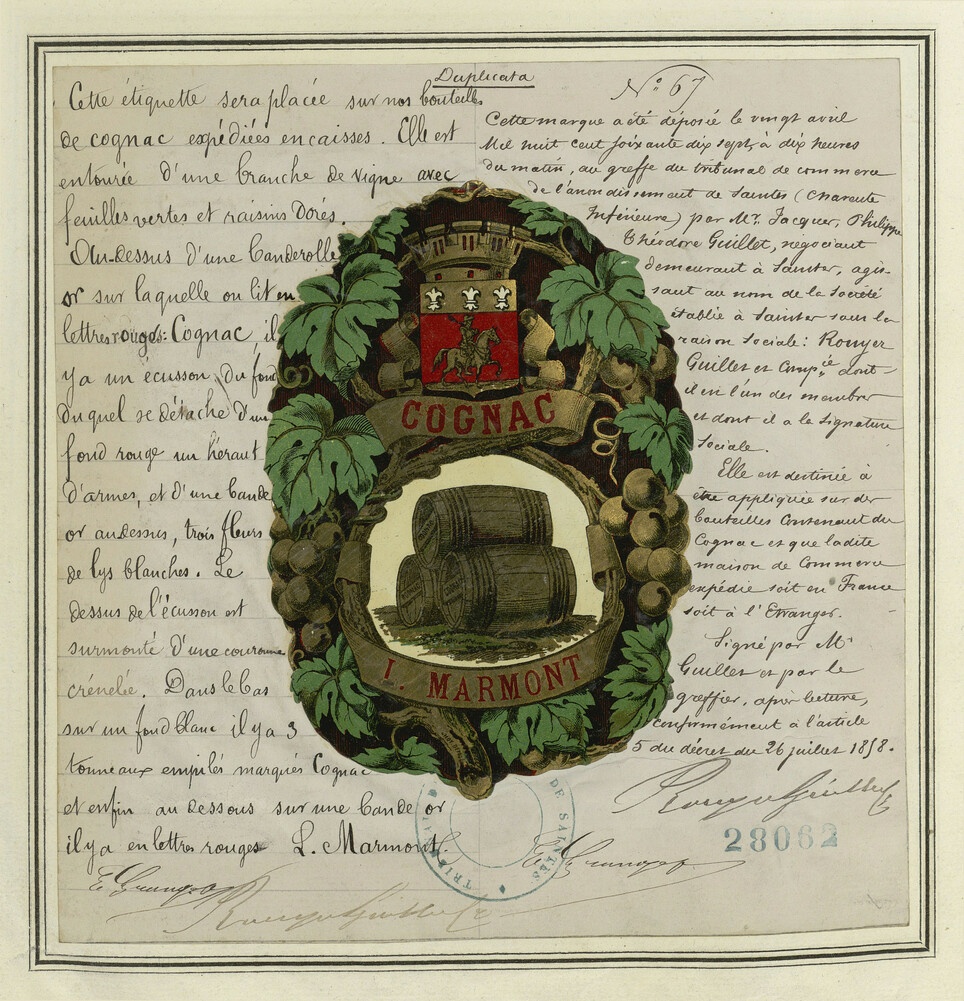 Duplicata
Cette étiquette sera placée sur nos bouteilles
de cognac expédiées en caisses. Elle est
entourée d'une branche de vigne avec
feuilles vertes et raisins dorés.
Au-dessus d'une banderolle
or sur laquelle on lit en
lettres rouges: Cognac, il
y a un écusson du fond
duquel se détache d'un
fond rouge un héraut
d'armes, et d'une bande
or au dessus, trois fleurs
de lys blanches. Le
dessus de l'écusson est
surmonté d'une couronne
crénelée. Dans le bas
sur un fond blanc il y a 3
tonneaux empilés marqués Cognac
et enfin au dessous sur une bande or
il y a en lettres rouges L. Marmont
No. 67
Cette marque a été déposée le vingt avril
Mil huit cent soixante dix sept, à dix heures
du matin, au greffe du tribunal de commerce
de l'arrondissement de Saintes (Charente
Inférieure) par Mr. Jacques, Philippe
Théodore Guillet, négociant
demeurant à Saintes, agis-
sant au nom de la Société
établie à Saintes sous la
raison Sociale: Rouyer
Guillet et Compie dont
il en l'un des membres
et dont il a la signature
Sociale.
Elle est destinée à
être appliquée sur des
bouteilles contenant du
Cognac et que la dite
maison de Commerce
expédie soit en France
soit à l'Etranger.
Signé par Mr
Guillet et par le
greffier, après lecture,
conformément à l'article
5 du décret du 26 juillet 1858.
COGNAC
I. MARMONT
Rouyer Guillet & C
28062
DE SAINTES
Rouyer Guillet & Co